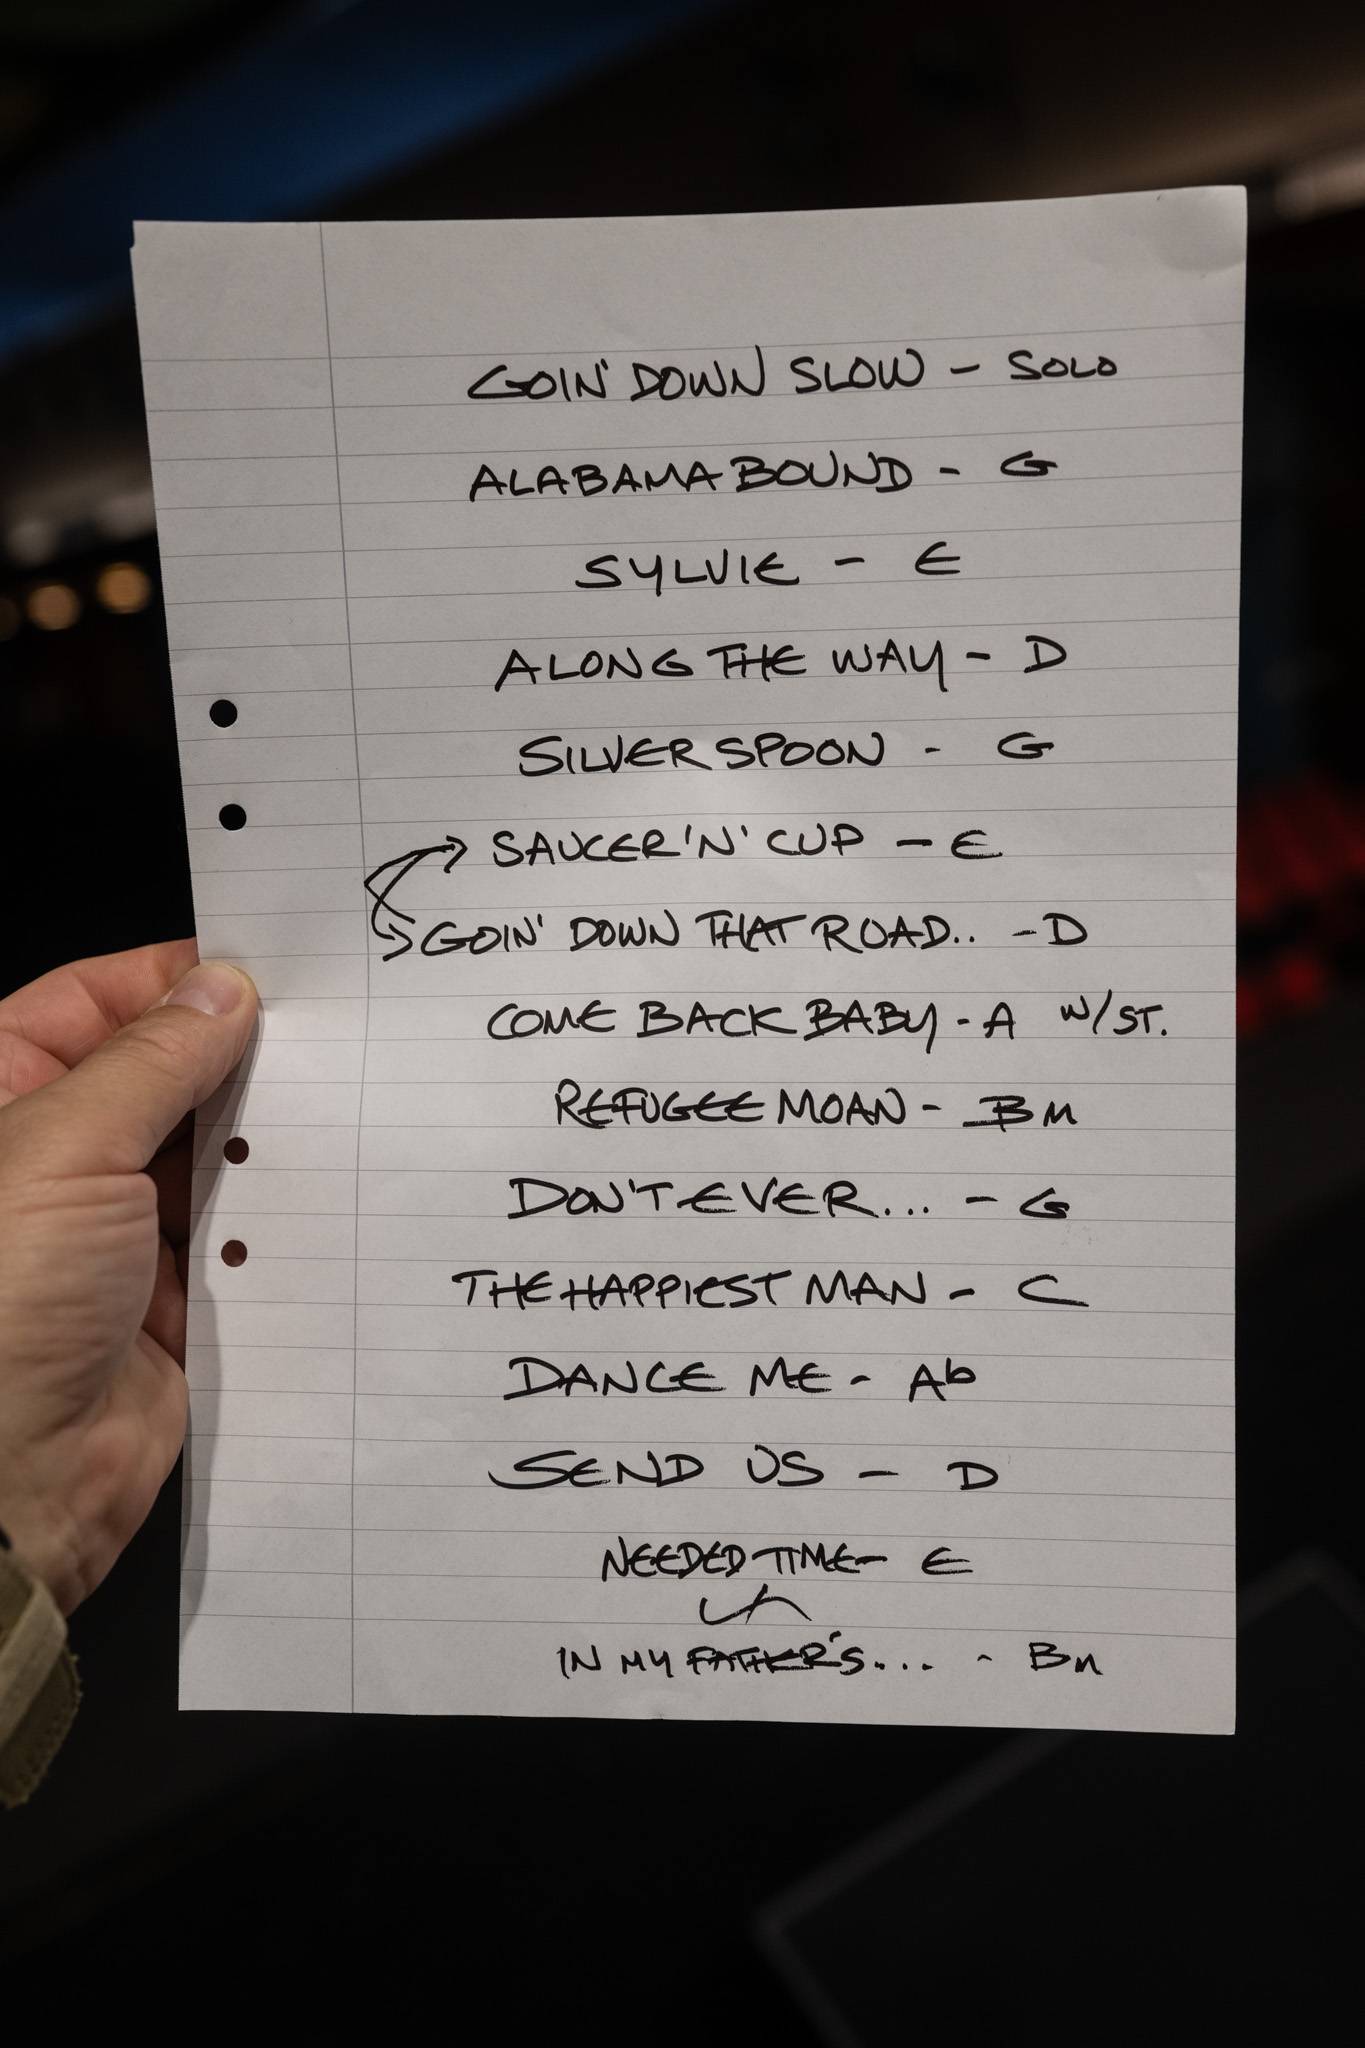 GOIN' DOWN SLOW - SOLO
ALABAMA BOUND - G
SYLVIE - E
ALONG THE WAY - D
SILVER SPOON - G
SAUCER 'N' CUP - E
GOIN' DOWN THAT ROAD.. - D
COME BACK BABY - A W/ST.
REFUGEE MOAN - Bm
DON'T EVER... - G
THE HAPPIEST MAN - C
DANCE ME - Ab
SEND US - D
NEEDED TIME - E
IN MY FATHER'S.... - Bm